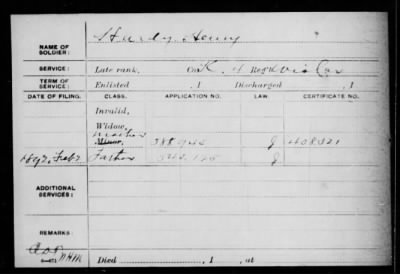 NAME OF SOLDIER: Hurdy, Henry
SERVICE: Late rank, Co. K, 4 Reg't Wis Cav
TERM OF SERVICE: Enlisted , 1 Discharged , 1
DATE OF FILING. CLASS. APPLICATION NO. CERTIFICATE NO.
Invalid,
Widow,
Mother
Minor, 388 940 408321
Father
ADDITIONAL SERVICES:
REMARKS:
Died , 1 , at